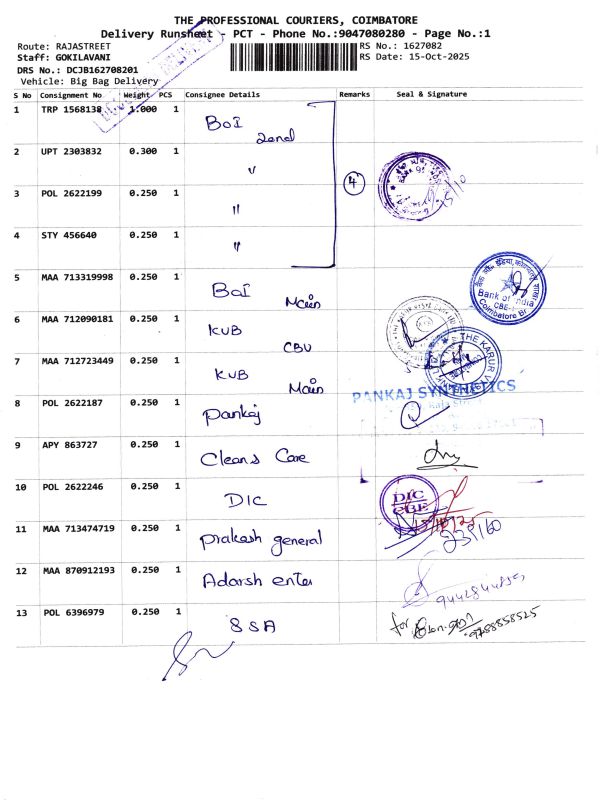 THE PROFESSIONAL COURIERS, COIMBATORE
Delivery Runsheet - PCT - Phone No.:9047080280 - Page No.:1
Route: RAJASTREET
RS No.: 1627082
Staff: GOKILAVANI
RS Date: 15-Oct-2025
DRS No.: DCJB162708201
Vehicle: Big Bag Delivery
S No Consignment No Weight PCS Consignee Details Remarks Seal & Signature
1 TRP 1568138 1.000 1 BOI
zonal
2 UPT 2303832 0.300 1 "
4
3 POL 2622199 0.250 1 "
4 STY 456640 0.250 1 "
5 MAA 713319998 0.250 1 BOI Main
Bank of India
CBE
Coimbatore Br.
6 MAA 712090181 0.250 1 KVB CBU
7 MAA 712723449 0.250 1 KVB Main
THE KARUR
8 POL 2622187 0.250 1 Pankaj
PANKAJ SYNTHETICS
9 APY 863727 0.250 1 Cleans Care
10 POL 2622246 0.250 1 DIC
DIC
CBE
11 MAA 713474719 0.250 1 Prakash general
12 MAA 870912193 0.250 1 Adarsh enter
13 POL 6396979 0.250 1 SSA
for
9788858525